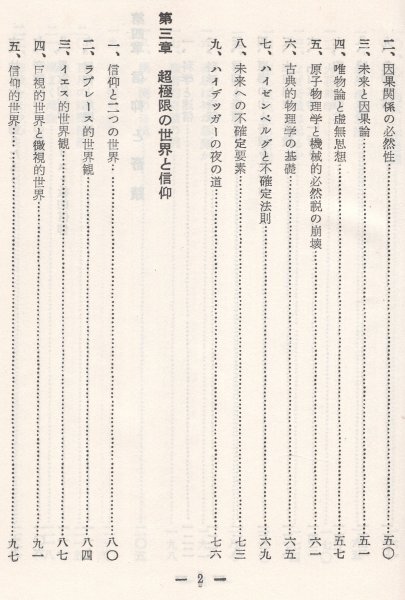 二、因果関係の必然性……五〇
三、未来と因果論……五一
四、唯物論と虚無思想……五七
五、原子物理学と機械的必然説の崩壊……六一
六、古典的物理学の基礎……六五
七、ハイゼンベルグと不確定法則……六九
八、未来への不確定要素……七三
九、ハイデッガーの夜の道……七六
第三章　超極限の世界と信仰
一、信仰と二つの世界……八〇
二、ラプレース的世界観……八四
三、イエス的世界観……八七
四、巨視的世界と微視的世界……九一
五、信仰的世界……九七
— 2 —